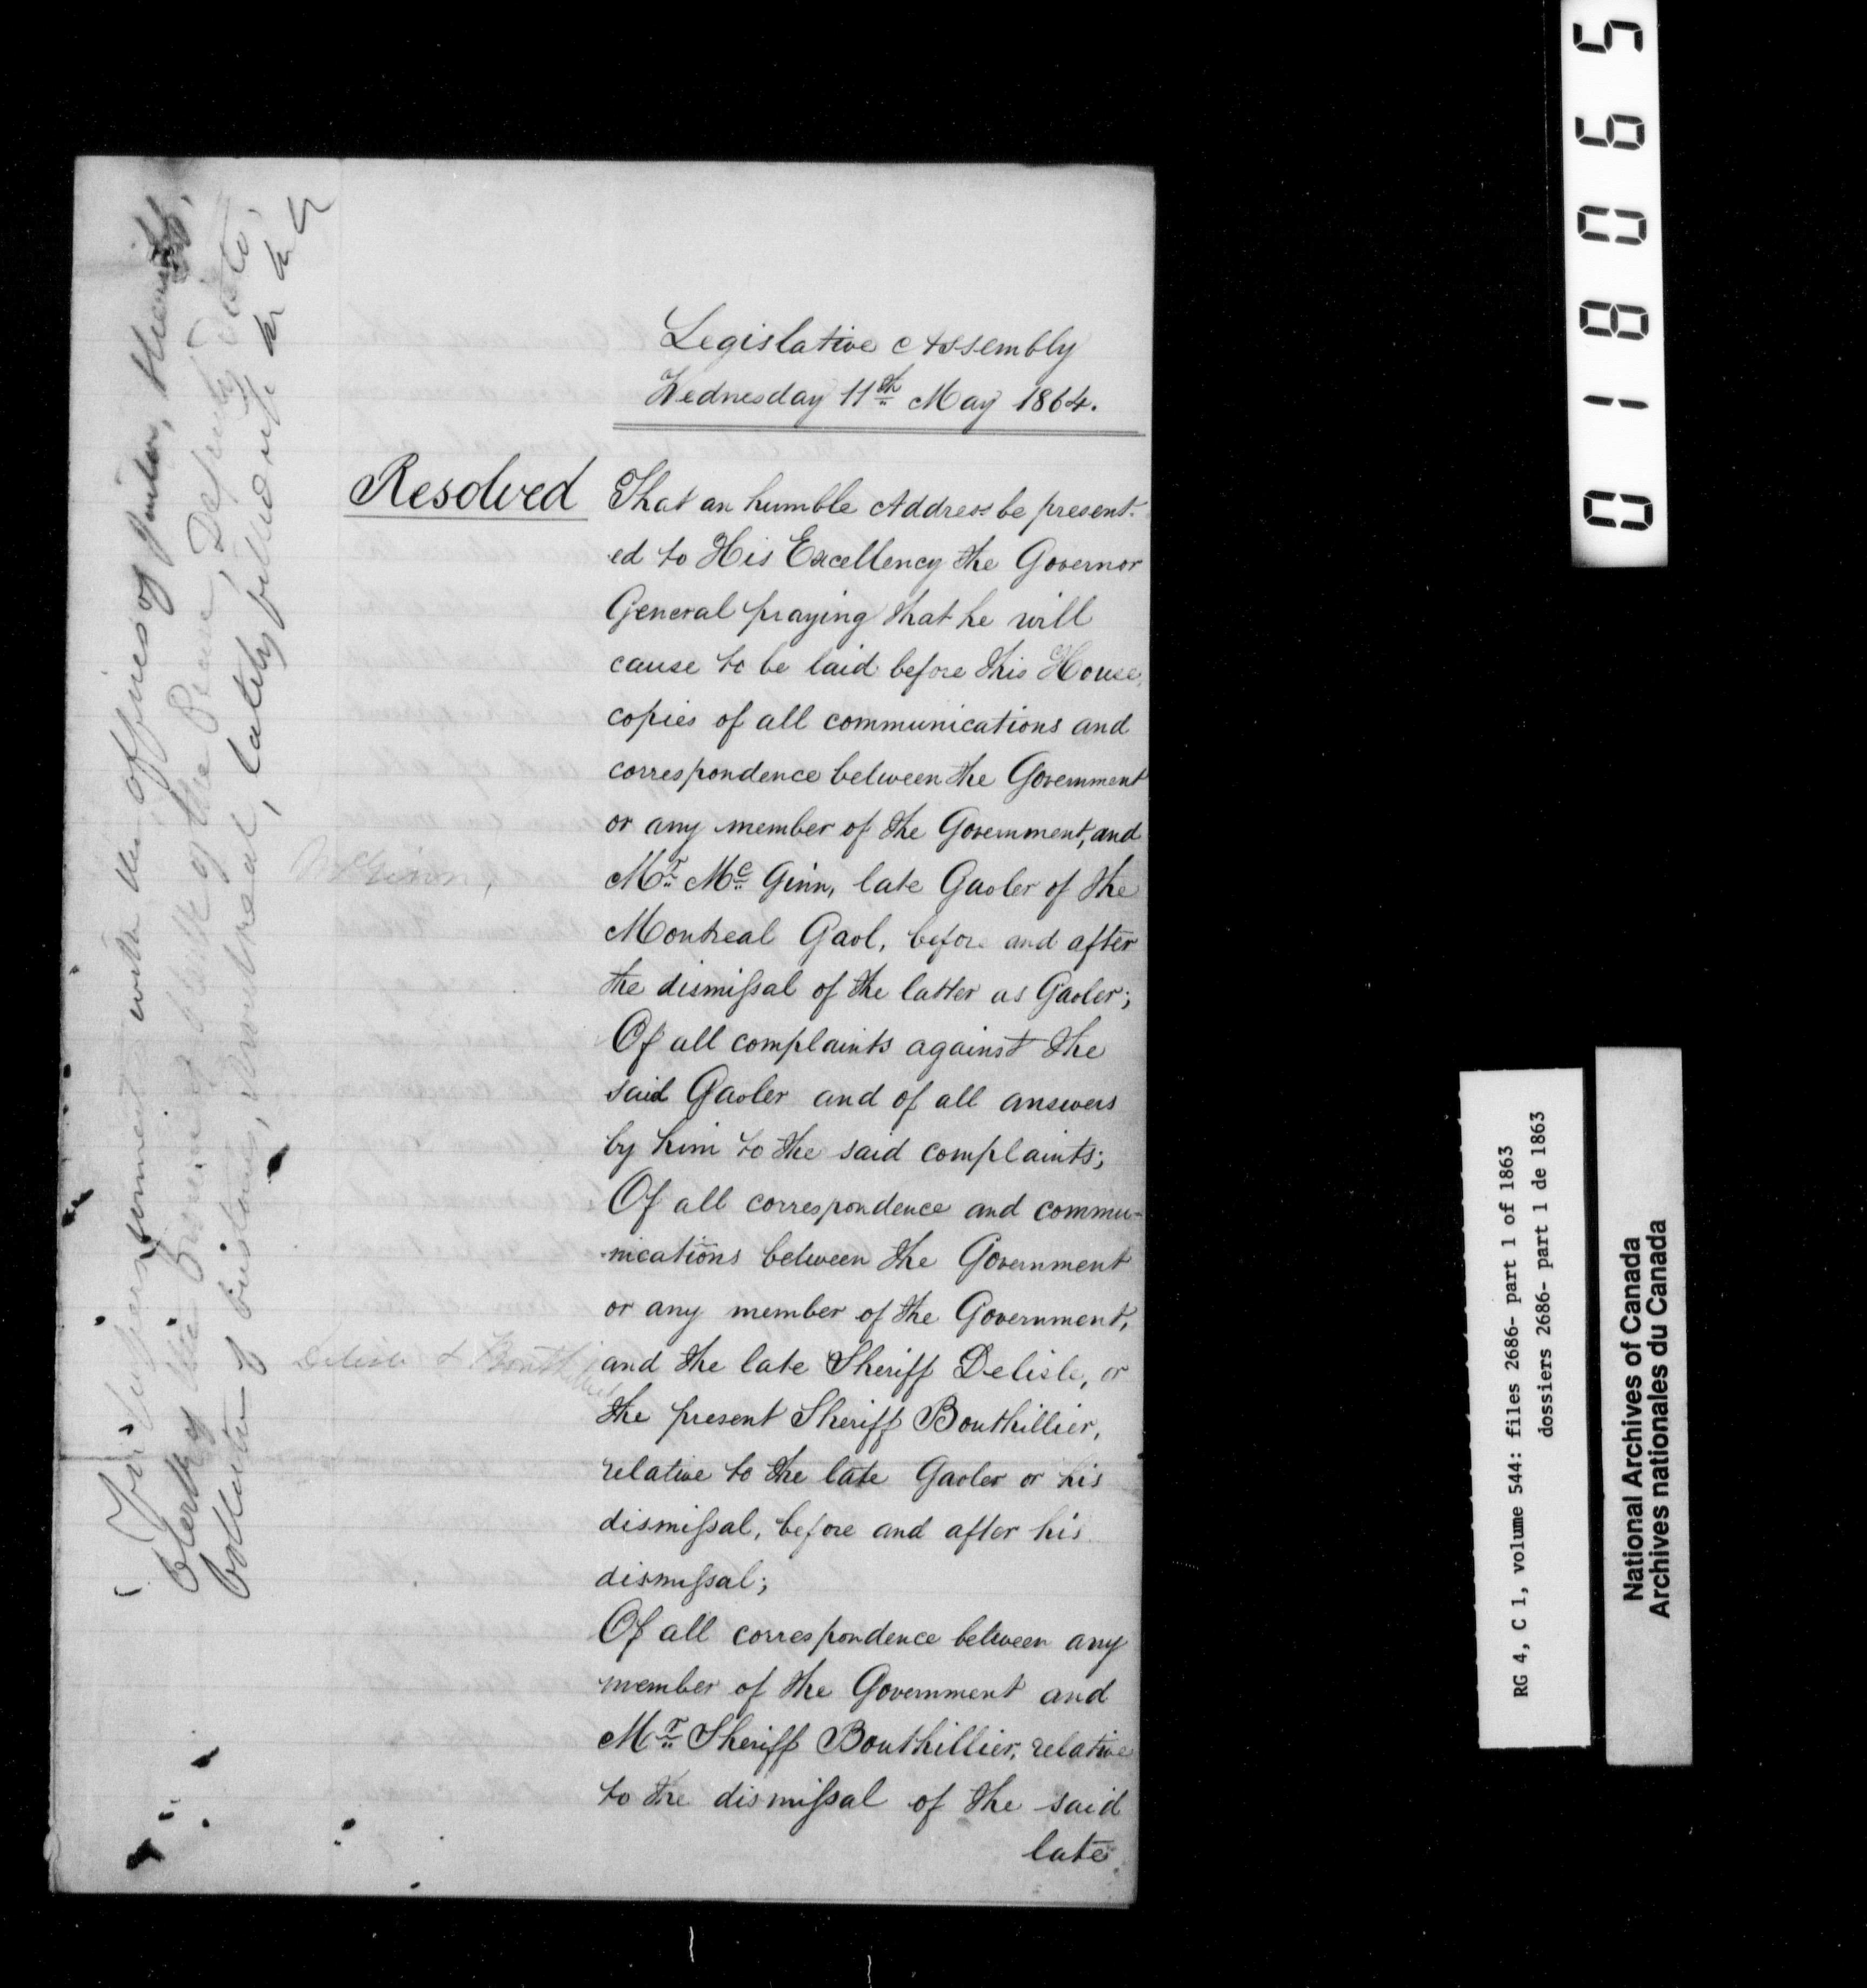 Legislative Assembly
Wednesday 11th May 1864.
Resolved That an humble Address be present-
ed to His Excellency the Governor
General praying that he will
cause to be laid before this House,
copies of all communications and
correspondence between the Government
or any member of the Government, and
Mr. Mc. Ginn, late Gaoler of the
Montreal Gaol, before and after
the dismissal of the latter as Gaoler;
Of all complaints against the
said Gaoler and of all answers
by him to the said complaints;
Of all correspondence and commu-
-nications between the Government
or any member of the Government,
and the late Sheriff Delisle, or
the present Sheriff Bouthillier,
relative to the late Gaoler or his
dismissal, before and after his
dismissal;
Of all correspondence between any
member of the Government and
Mr. Sheriff Bouthillier, relative
to the dismissal of the said
late
McGinn,
Delisle & Bouthillier
with the offices of Sheriff,
Clerk of the Clerk of the Peace, Deputy
Collector of Customs, Montreal, lately filled
018065
RG 4, C 1, volume 544: files 2686- part 1 of 1863
dossiers 2686- part 1 de 1863
National Archives of Canada
Archives nationales du Canada